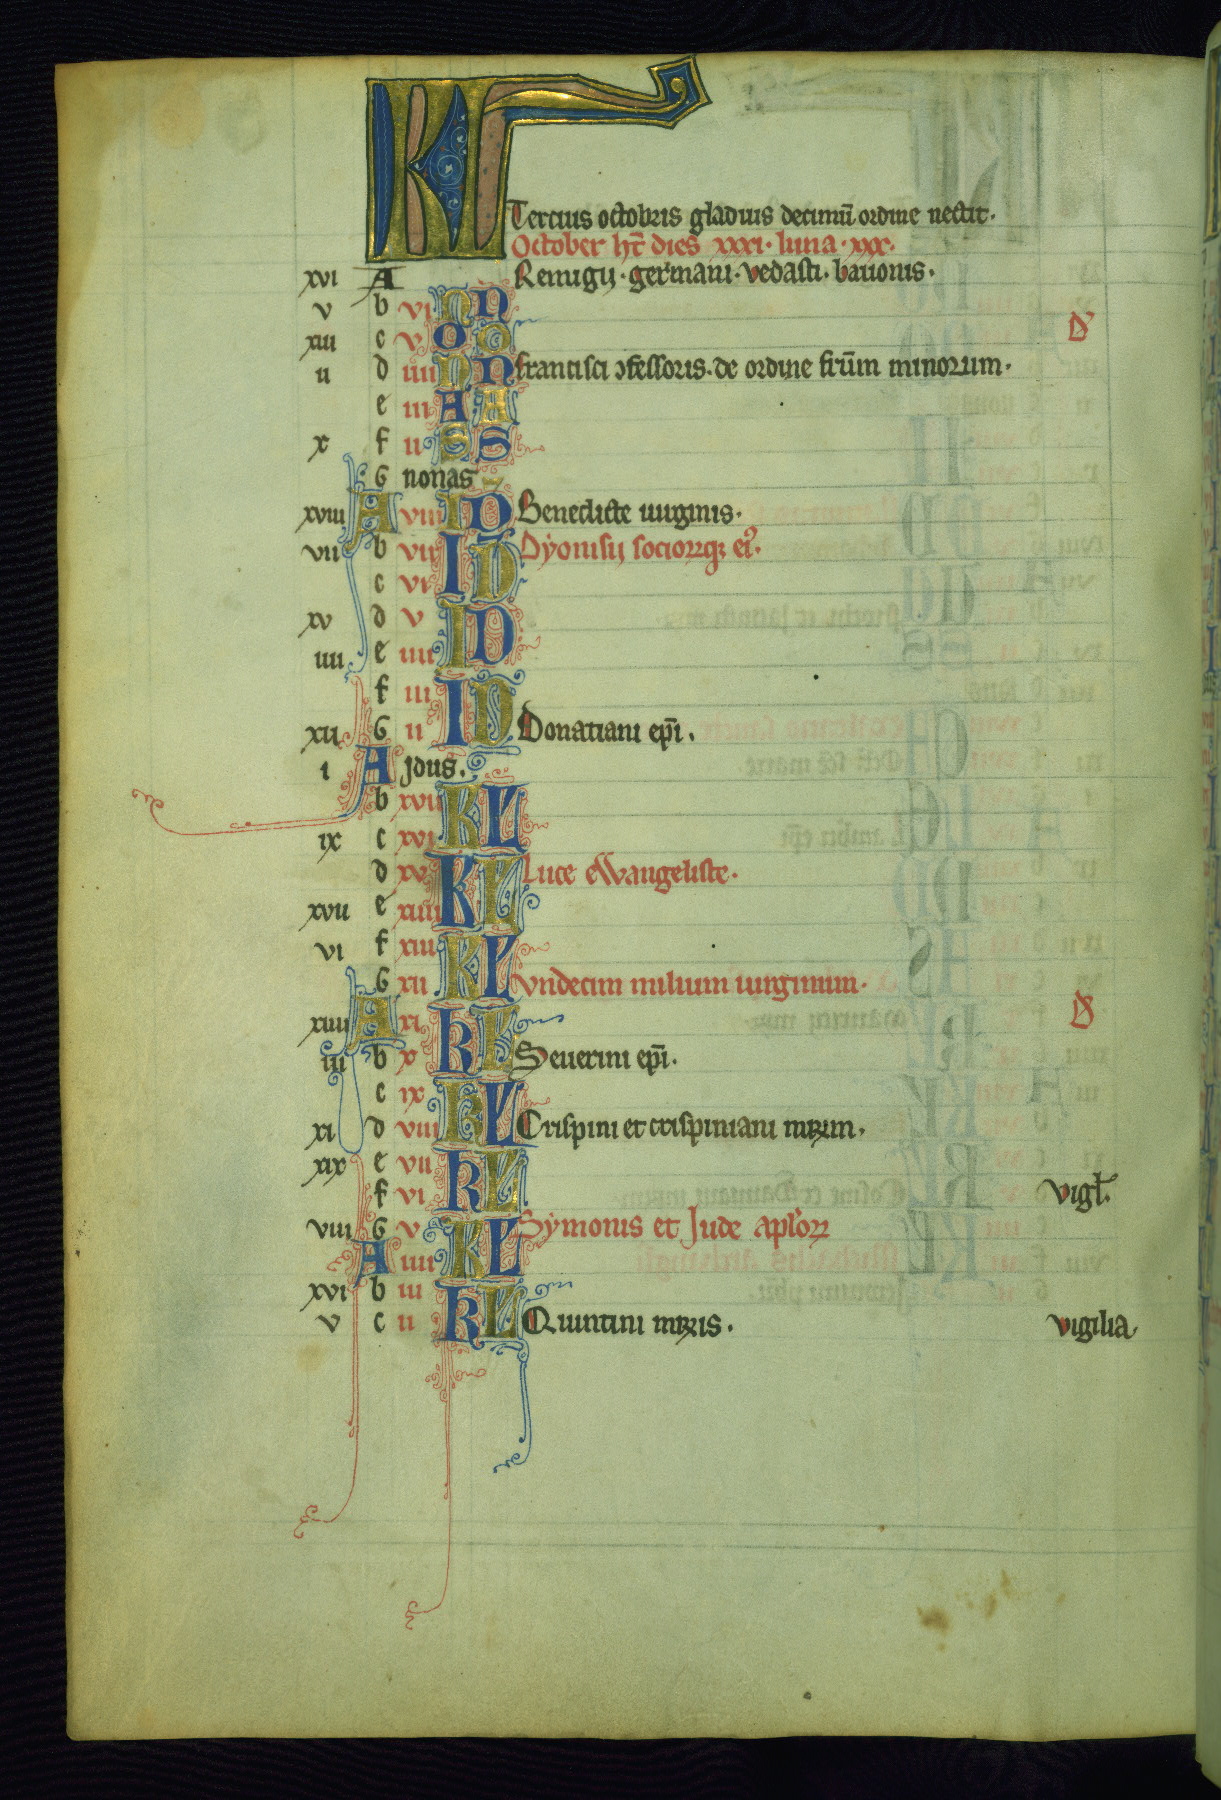 KL
Tercius octobris gladius decimū ordine nectit.
October ht̄ dies xxxi. luna. xxx.
xvi A Remigij. germani. vedasti. bavonis.
v b vi N N
xiii c v O O D
ii d iiii N N francisci ɔfessoris. de ordine fr̄um minorum.
e iii A A
x f ii S S
G nonas
xviii A viii I D Benedicte uirginis.
vii b vii I D Dyonisij sociorꝝqꝫ eiꝰ.
c vi
xv d v I D
iiii e iiii
f iii I D
xii G ii Donatiani ep̄i.
i A jdus.
b xvii K L
ix c xvi
d xv K L Luce ewangeliste.
xvii e xiiii
vi f xiii K L
G xii Vndecim milium uirginum.
xiiii A xi K L D
iii b x Seuerini ep̄i.
c ix K L
xi d viii Crispini et crispiniani mr̄ꝝm.
xix e vii K L
f vi vigl̄.
viii G v K L Symonis et Jude apl̄oꝝ
A iiii
xvi b iii K L
v c ii Quintini mr̄ꝝis. vigilia